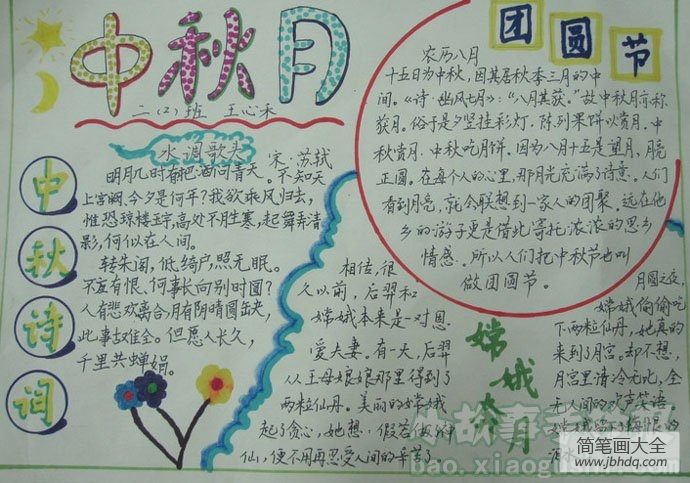 中秋月
二(2)班 王心禾
水调歌头 宋·苏轼
明月几时有把酒问青天。不知天
上宫阙,今夕是何年?我欲乘风归去,
惟恐琼楼玉宇,高处不胜寒,起舞弄清
影,何似在人间。
转朱阁,低绮户,照无眠。
不应有恨、何事长向别时圆?
人有悲欢离合,月有阴晴圆缺,
此事古难全。但愿人长久,
千里共婵娟。
中
秋
诗
词
团圆节
农历八月
十五日为中秋,因其居秋季三月的中
间。《诗·豳风七月》:“八月其获。”故中秋月亦称
获月。俗于是夕竖挂彩灯.陈列果饼以赏月.中
秋赏月.中秋吃月饼。因为八月十五是望月、月亮
正圆。在每个人的心里,那月光充满了诗意。人们
看到月亮,就会联想到一家人的团聚。远在他
乡的游子更是借此寄托浓浓的思乡
情感.所以人们把中秋节也叫
做团圆节。
相传,很
久以前,后羿和
嫦娥本来是一对恩
爱夫妻.有一天,后羿
从王母娘娘那里得到了
两粒仙丹。美丽的嫦娥
起了贪心,她想:假若
仙,便不用再忍受人间的辛苦了
嫦娥奔月
月圆之夜,
嫦娥偷偷吃
下两粒仙丹,她真的
来到了月宫.却不想,
月宫里清冷无比,全
无人间的欢声笑语,
bao.xiaogushi.com
简笔画大全
www.jbhdq.com